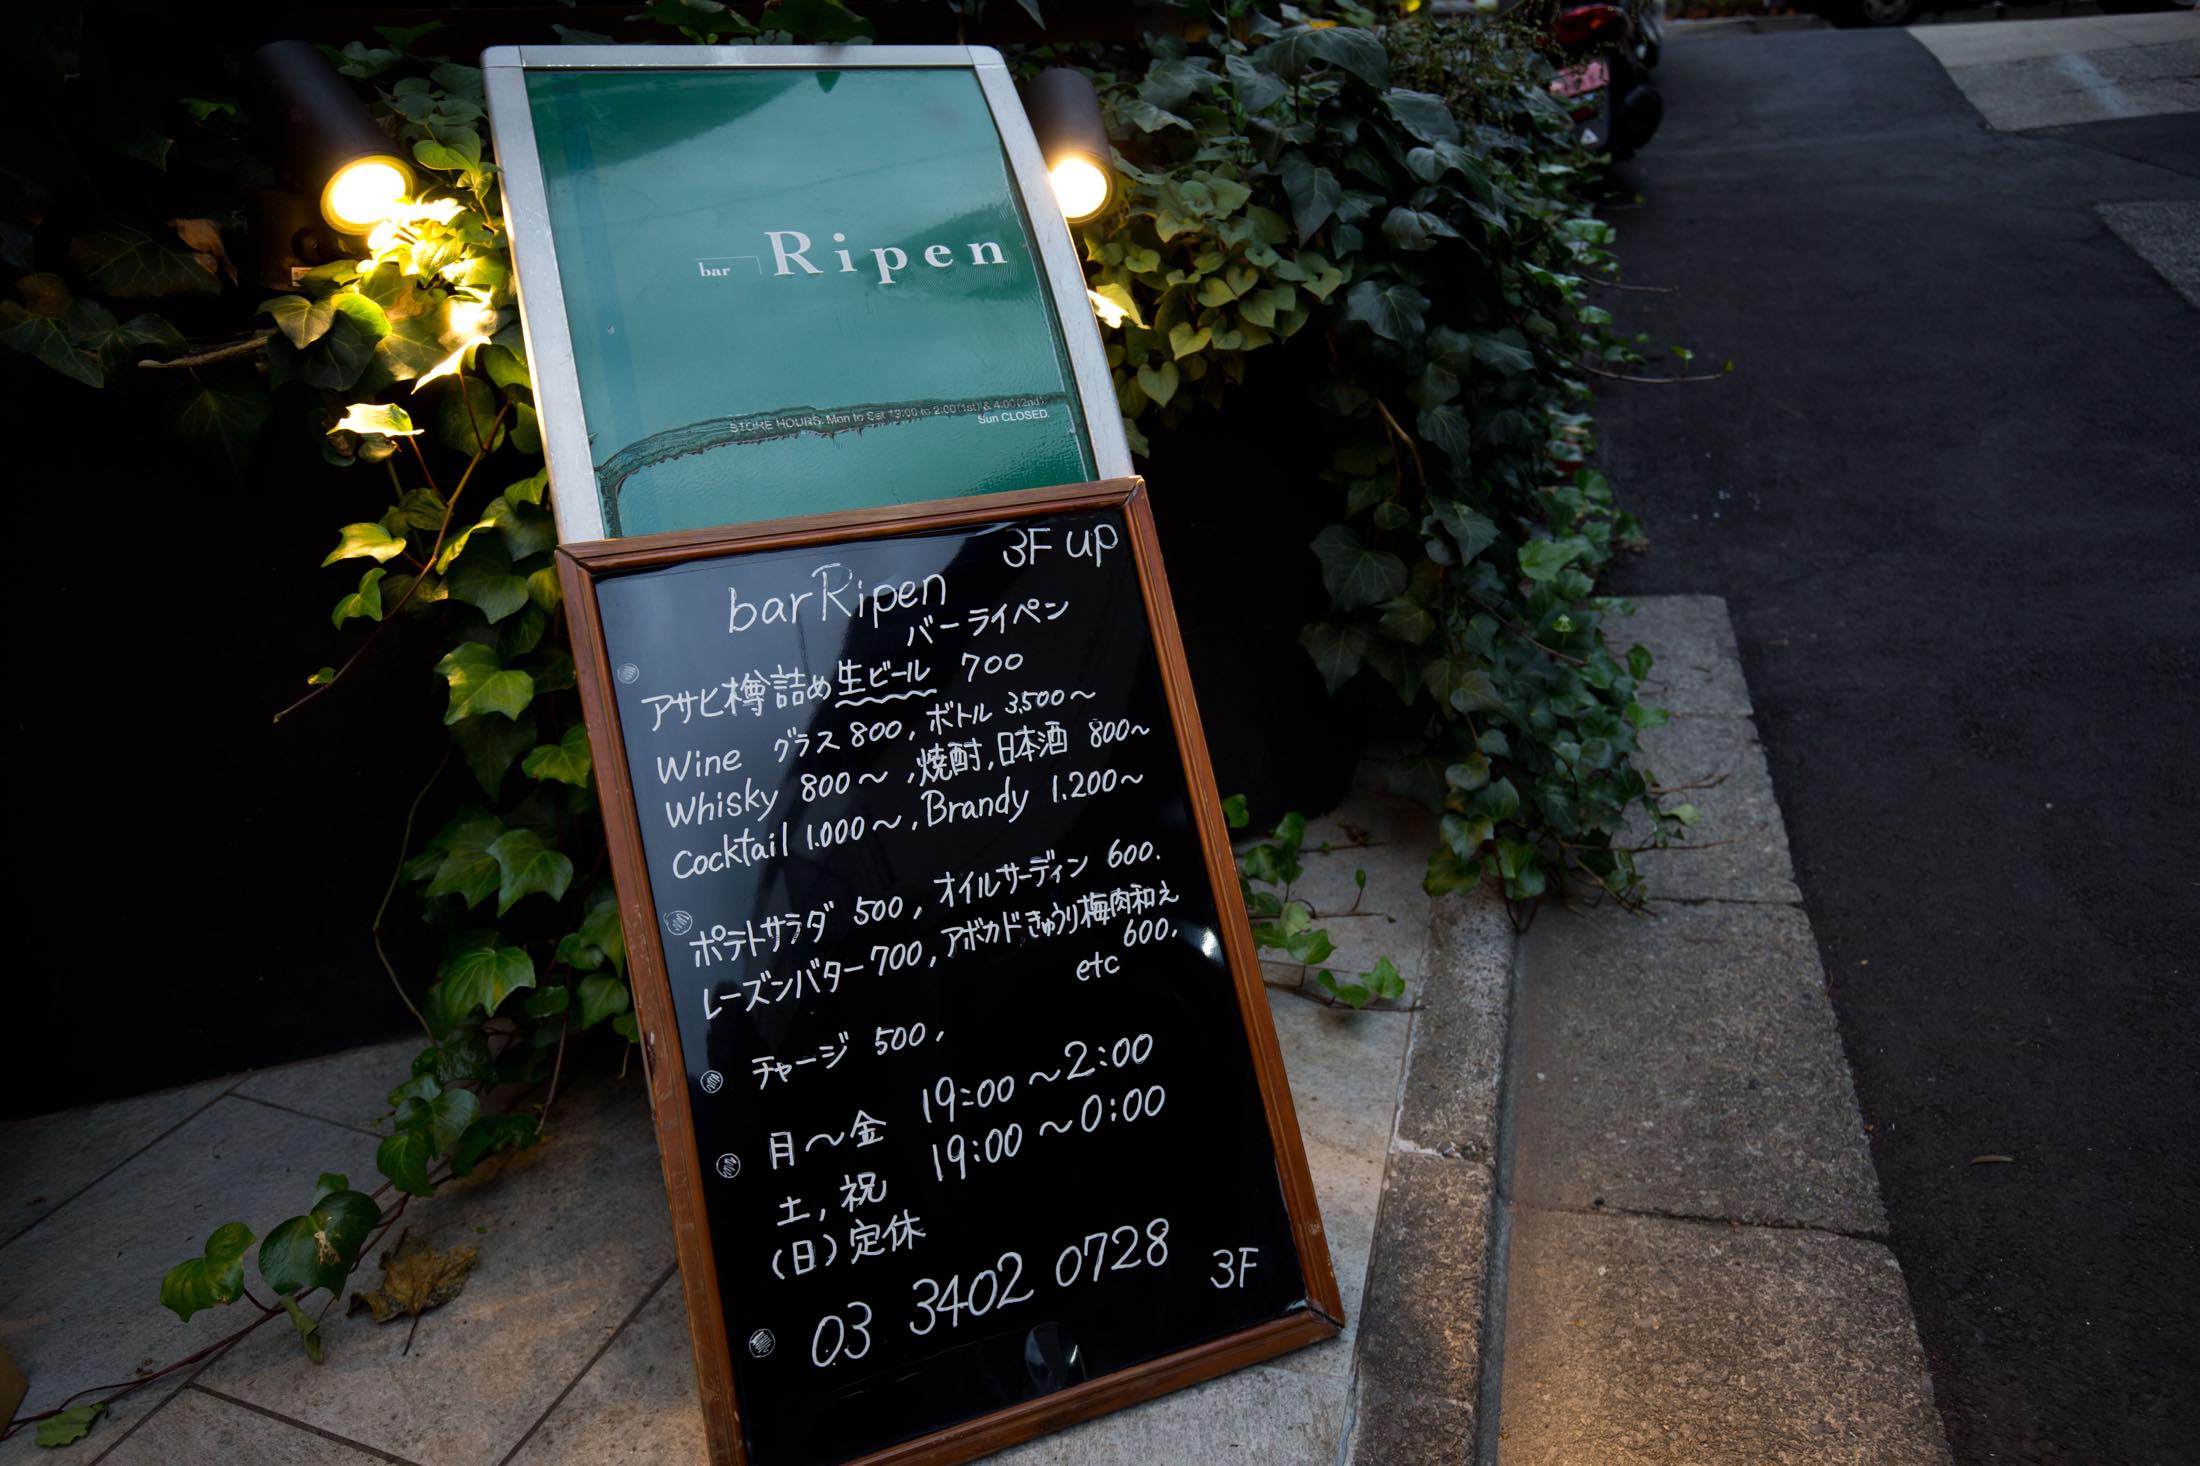 bar Ripen
STORE HOURS. Mon to Sat 19:00 to 2:00(1st) & 4:00(2nd)
Sun CLOSED.
3F up
bar Ripen
バーライペン
アサヒ樽詰め生ビール 700
Wine グラス 800, ボトル 3,500～
Whisky 800～, 焼酎, 日本酒 800～
Cocktail 1.000～, Brandy 1.200～
ポテトサラダ 500, オイルサーディン 600.
レーズンバター 700, アボカドきゅうり梅肉和え
600.
etc
チャージ 500,
月～金 19:00～2:00
土, 祝 19:00～0:00
(日) 定休
03 3402 0728
3F